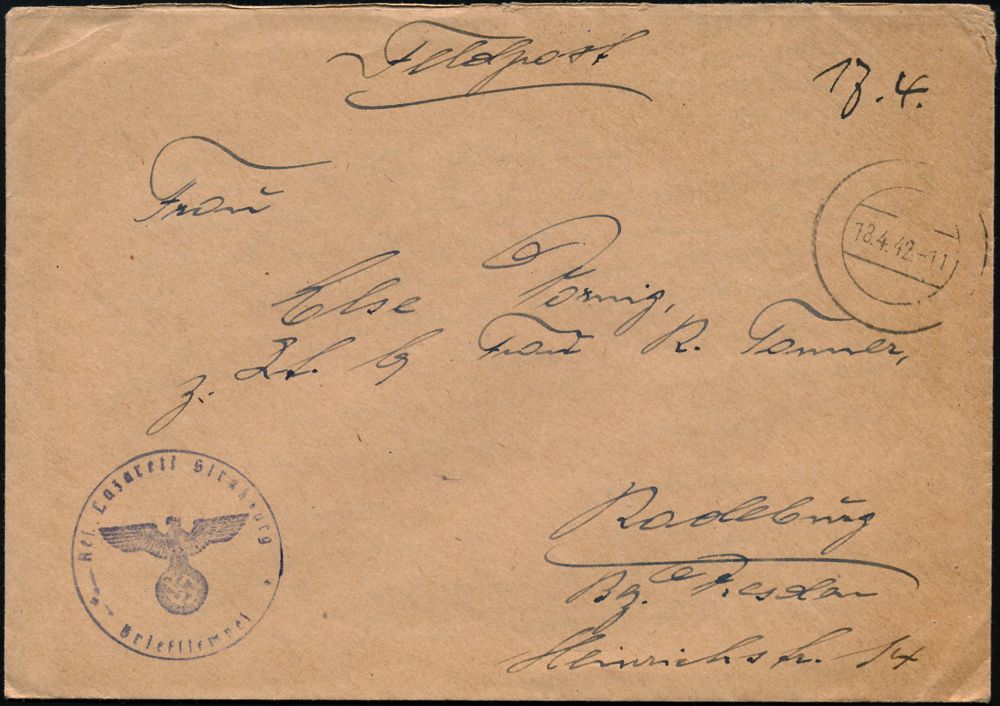 Feldpost
17.4.
Frau
18.4.42.-11
Else Pörnig,
z. Zt. b/ Frau R. Tanner,
Res. Lazarett Straßburg
Briefstempel
Radeburg
Bz. Dresden
Heinrichstr. 14